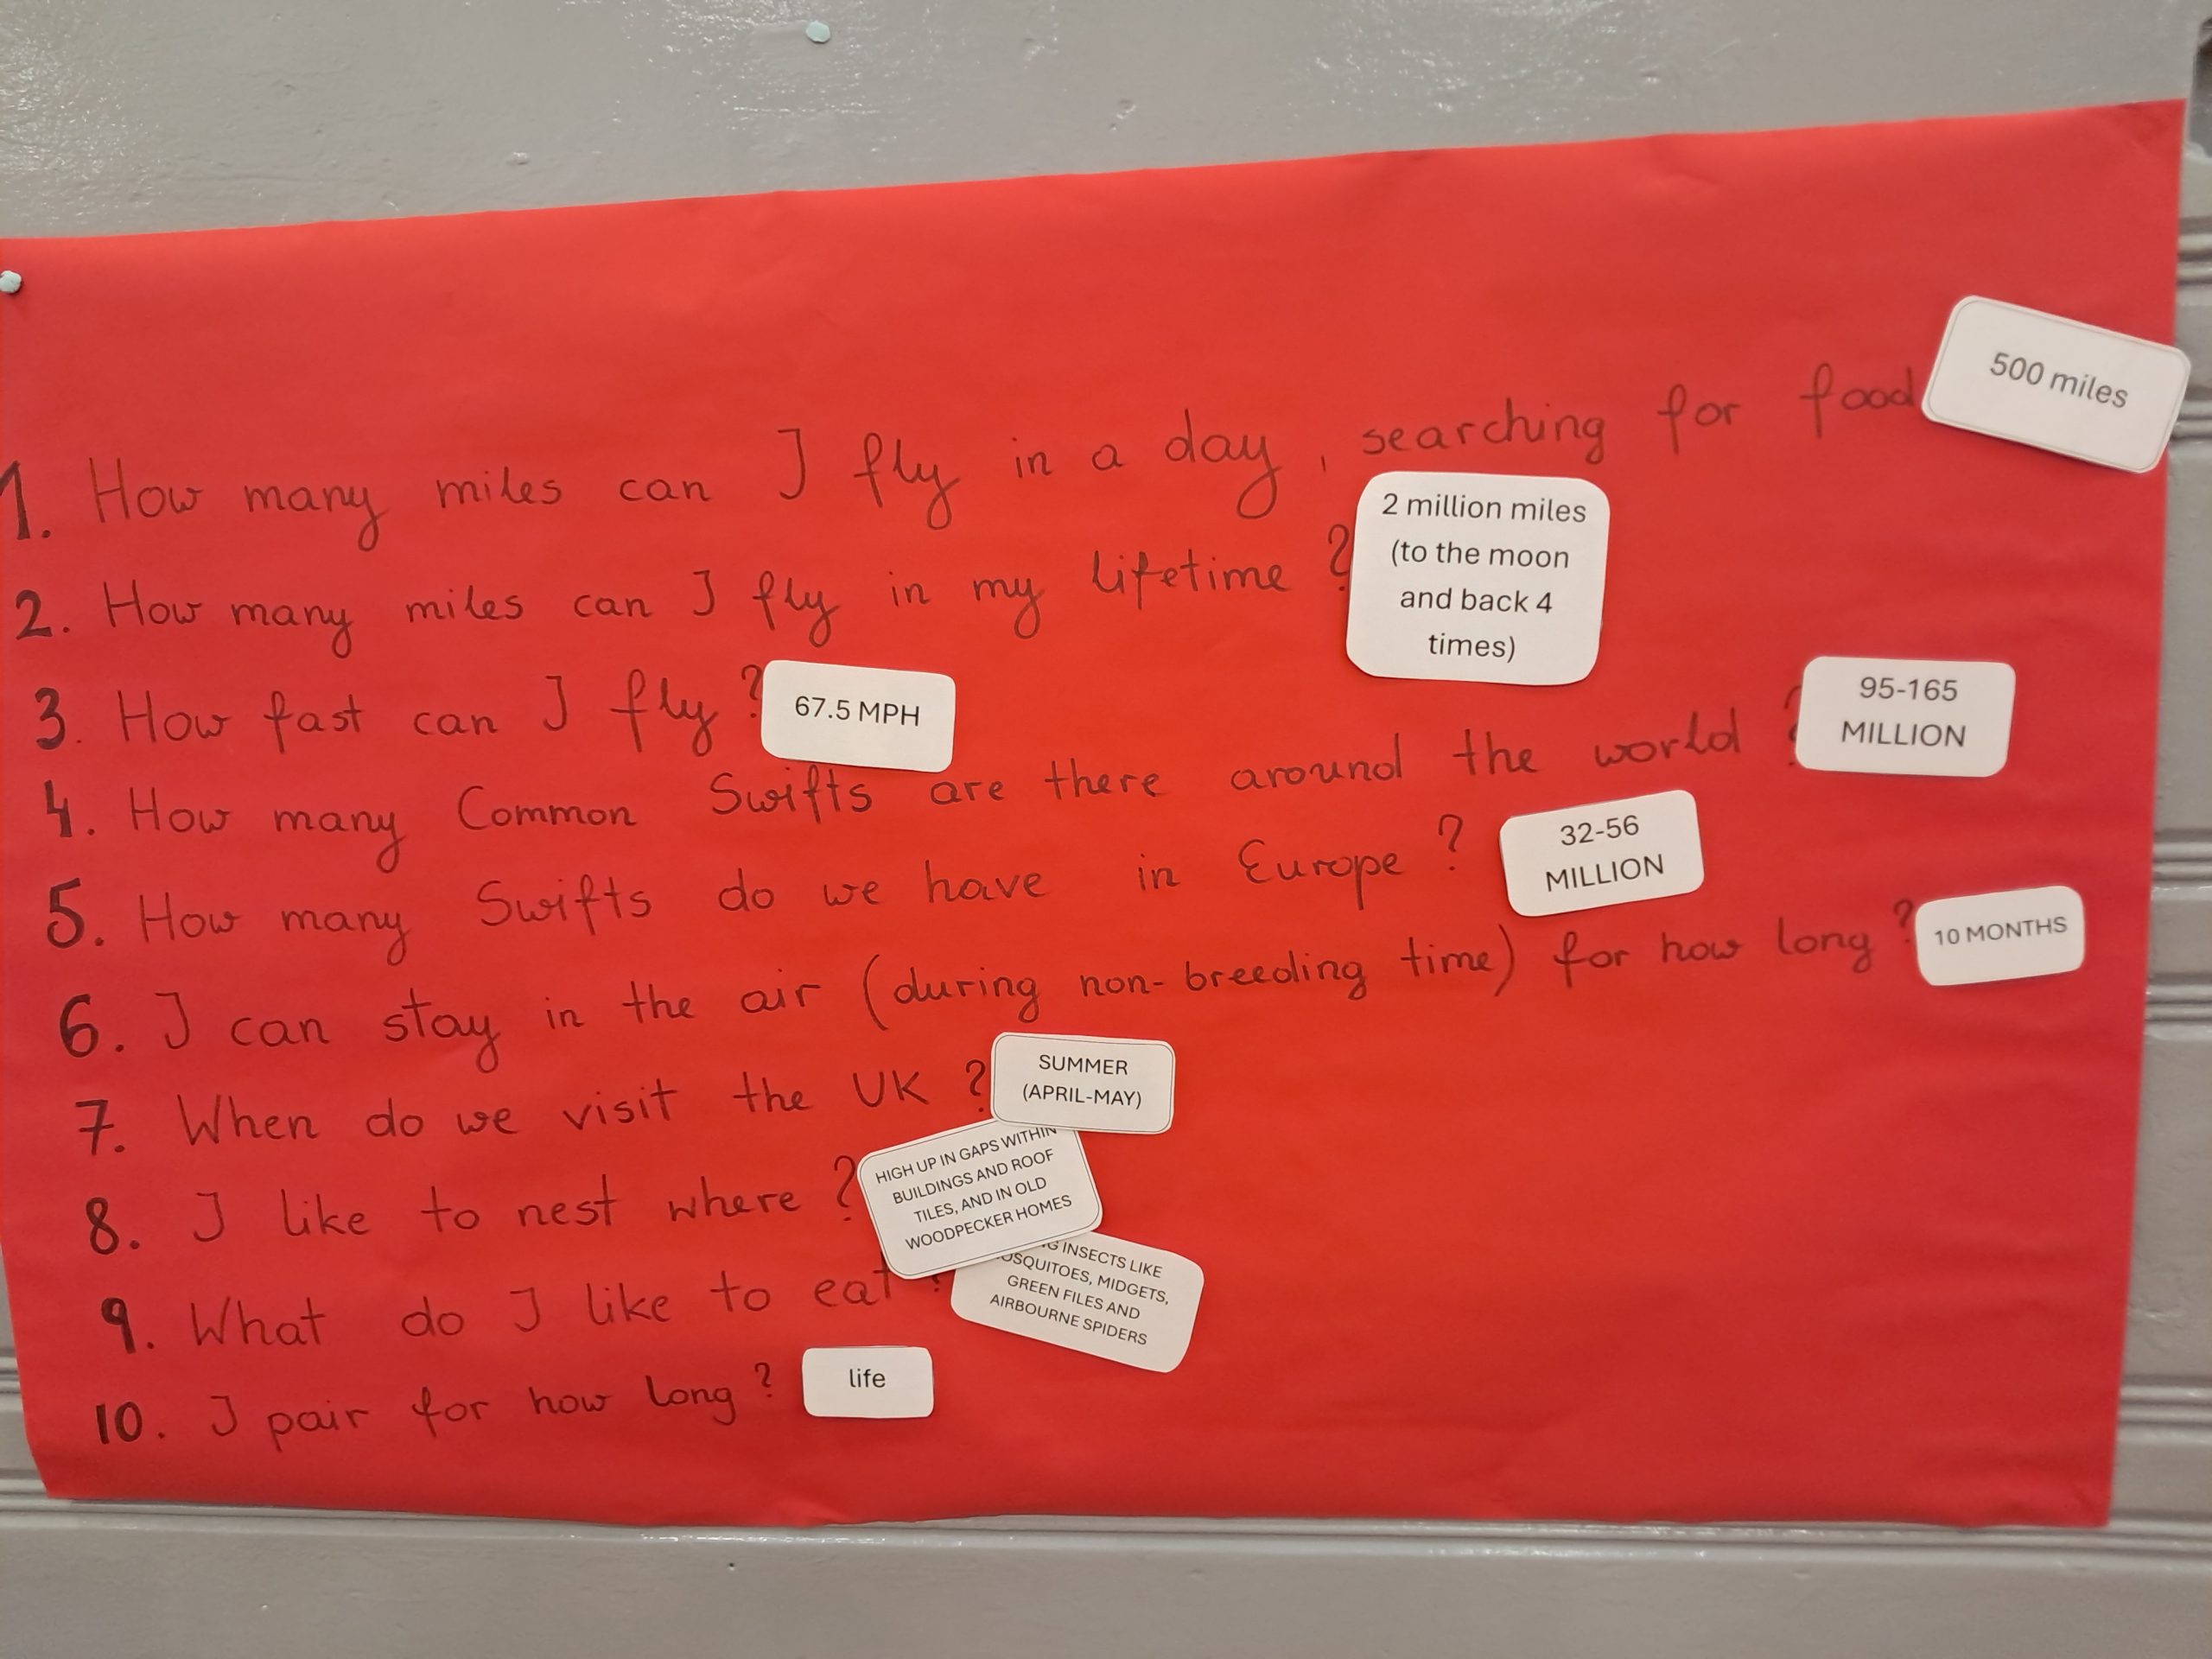 1. How many miles can I fly in a day, searching for food
500 miles
2. How many miles can I fly in my lifetime?
2 million miles
(to the moon
and back 4
times)
3. How fast can I fly?
67.5 MPH
4. How many Common Swifts are there around the world?
95-165
MILLION
5. How many Swifts do we have in Europe?
32-56
MILLION
6. I can stay in the air (during non-breeding time) for how long?
10 MONTHS
7. When do we visit the UK?
SUMMER
(APRIL-MAY)
8. I like to nest where?
HIGH UP IN GAPS WITHIN
BUILDINGS AND ROOF
TILES, AND IN OLD
WOODPECKER HOMES
9. What do I like to eat?
INSECTS LIKE
MIDGETS,
GREEN FILES AND
AIRBOURNE SPIDERS
10. I pair for how long?
life